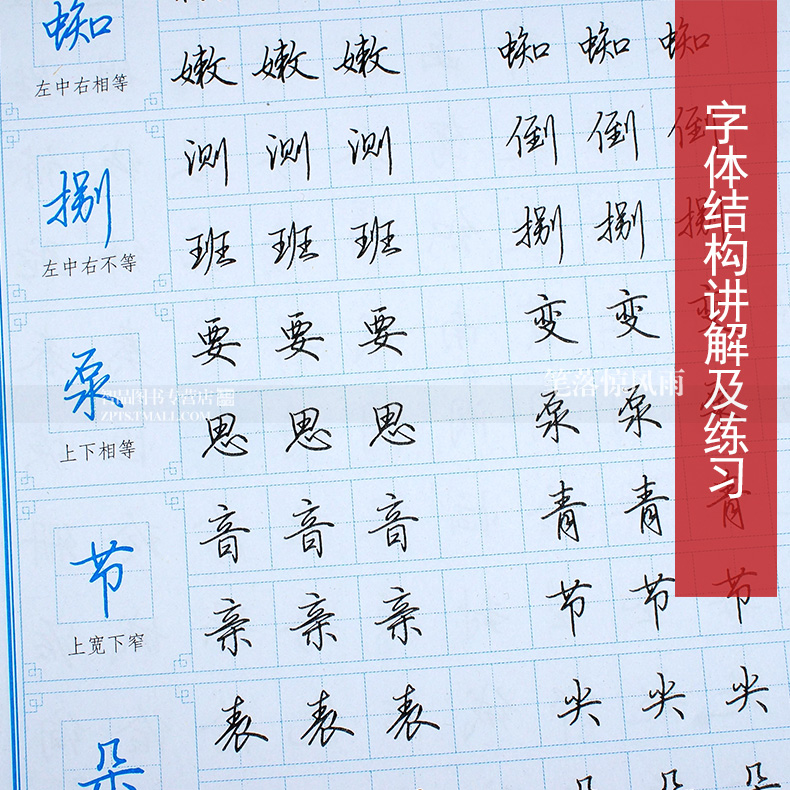 蜘
左中右相等
嫩 嫩 嫩 蜘 蜘 蜘
测 测 测 倒 倒 倒
捌
左中右不等
班 班 班 捌 捌 捌
要 要 要 变 变 变
泵
上下相等
思 思 思 泵 泵 泵
音 音 音 青 青 青
节
上宽下窄
亲 亲 亲 节 节 节
表 表 表 尖 尖 尖
朵
朵 朵 朵
字体结构讲解及练习
笔落惊风雨
品图书专营店
ZPTS.TMALL.COM